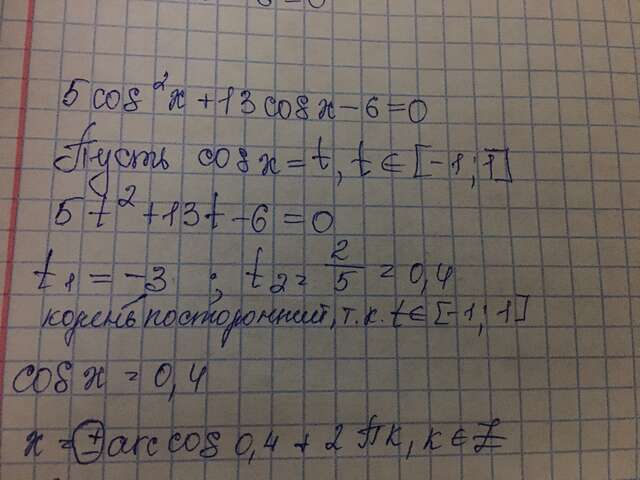 5 cos²x + 13 cos x − 6 = 0
Пусть cos x = t, t ∈ [−1; 1]
5t² + 13t − 6 = 0
t₁ = −3 ; t₂ = 2/5 = 0,4
корень посторонний, т.к. t ∈ [−1; 1]
cos x = 0,4
x = ± arccos 0,4 + 2πк, к ∈ Z